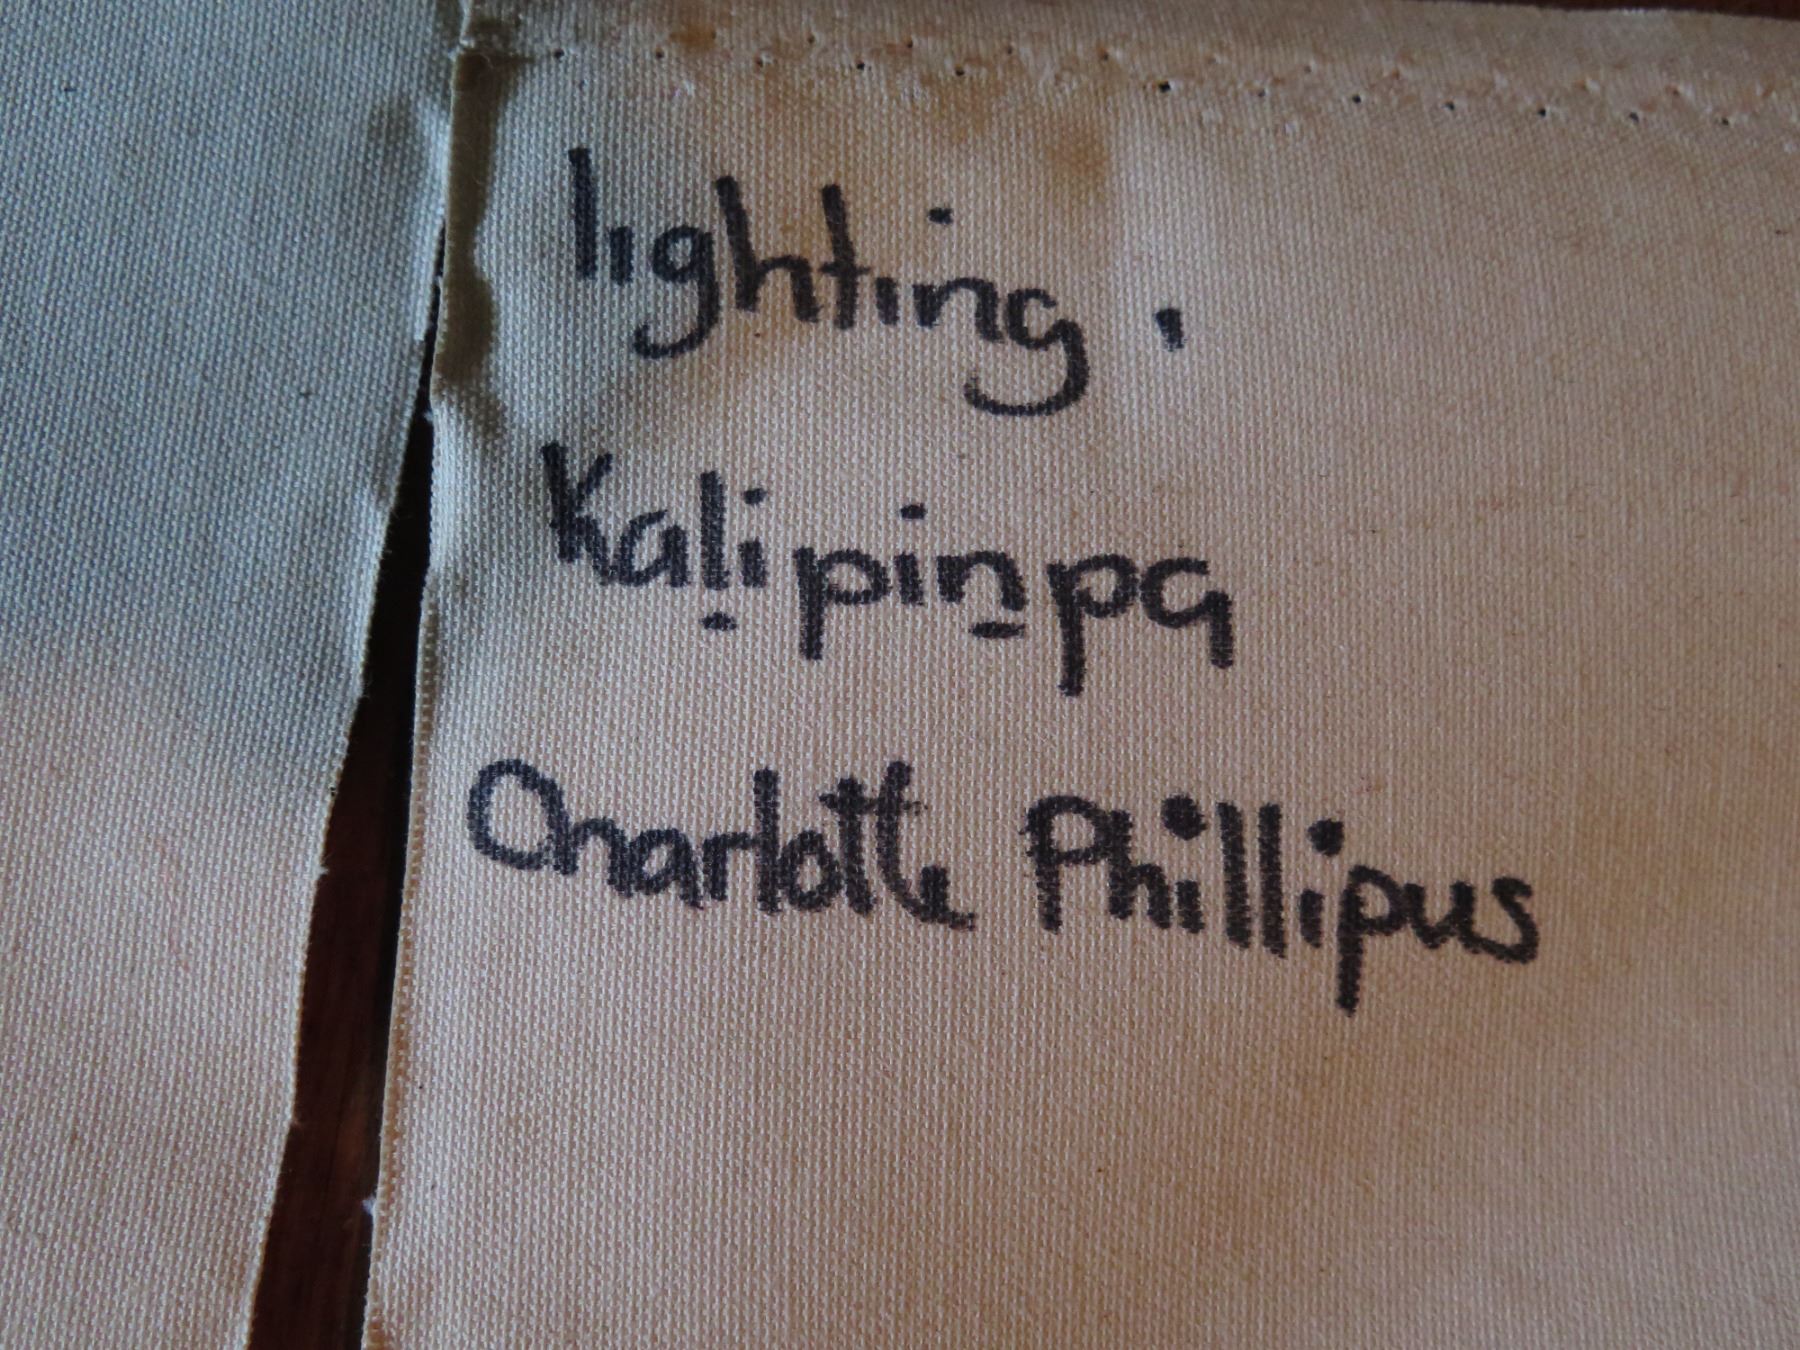 lighting.
Kaḻipiṉpa
Charlotte Phillipus